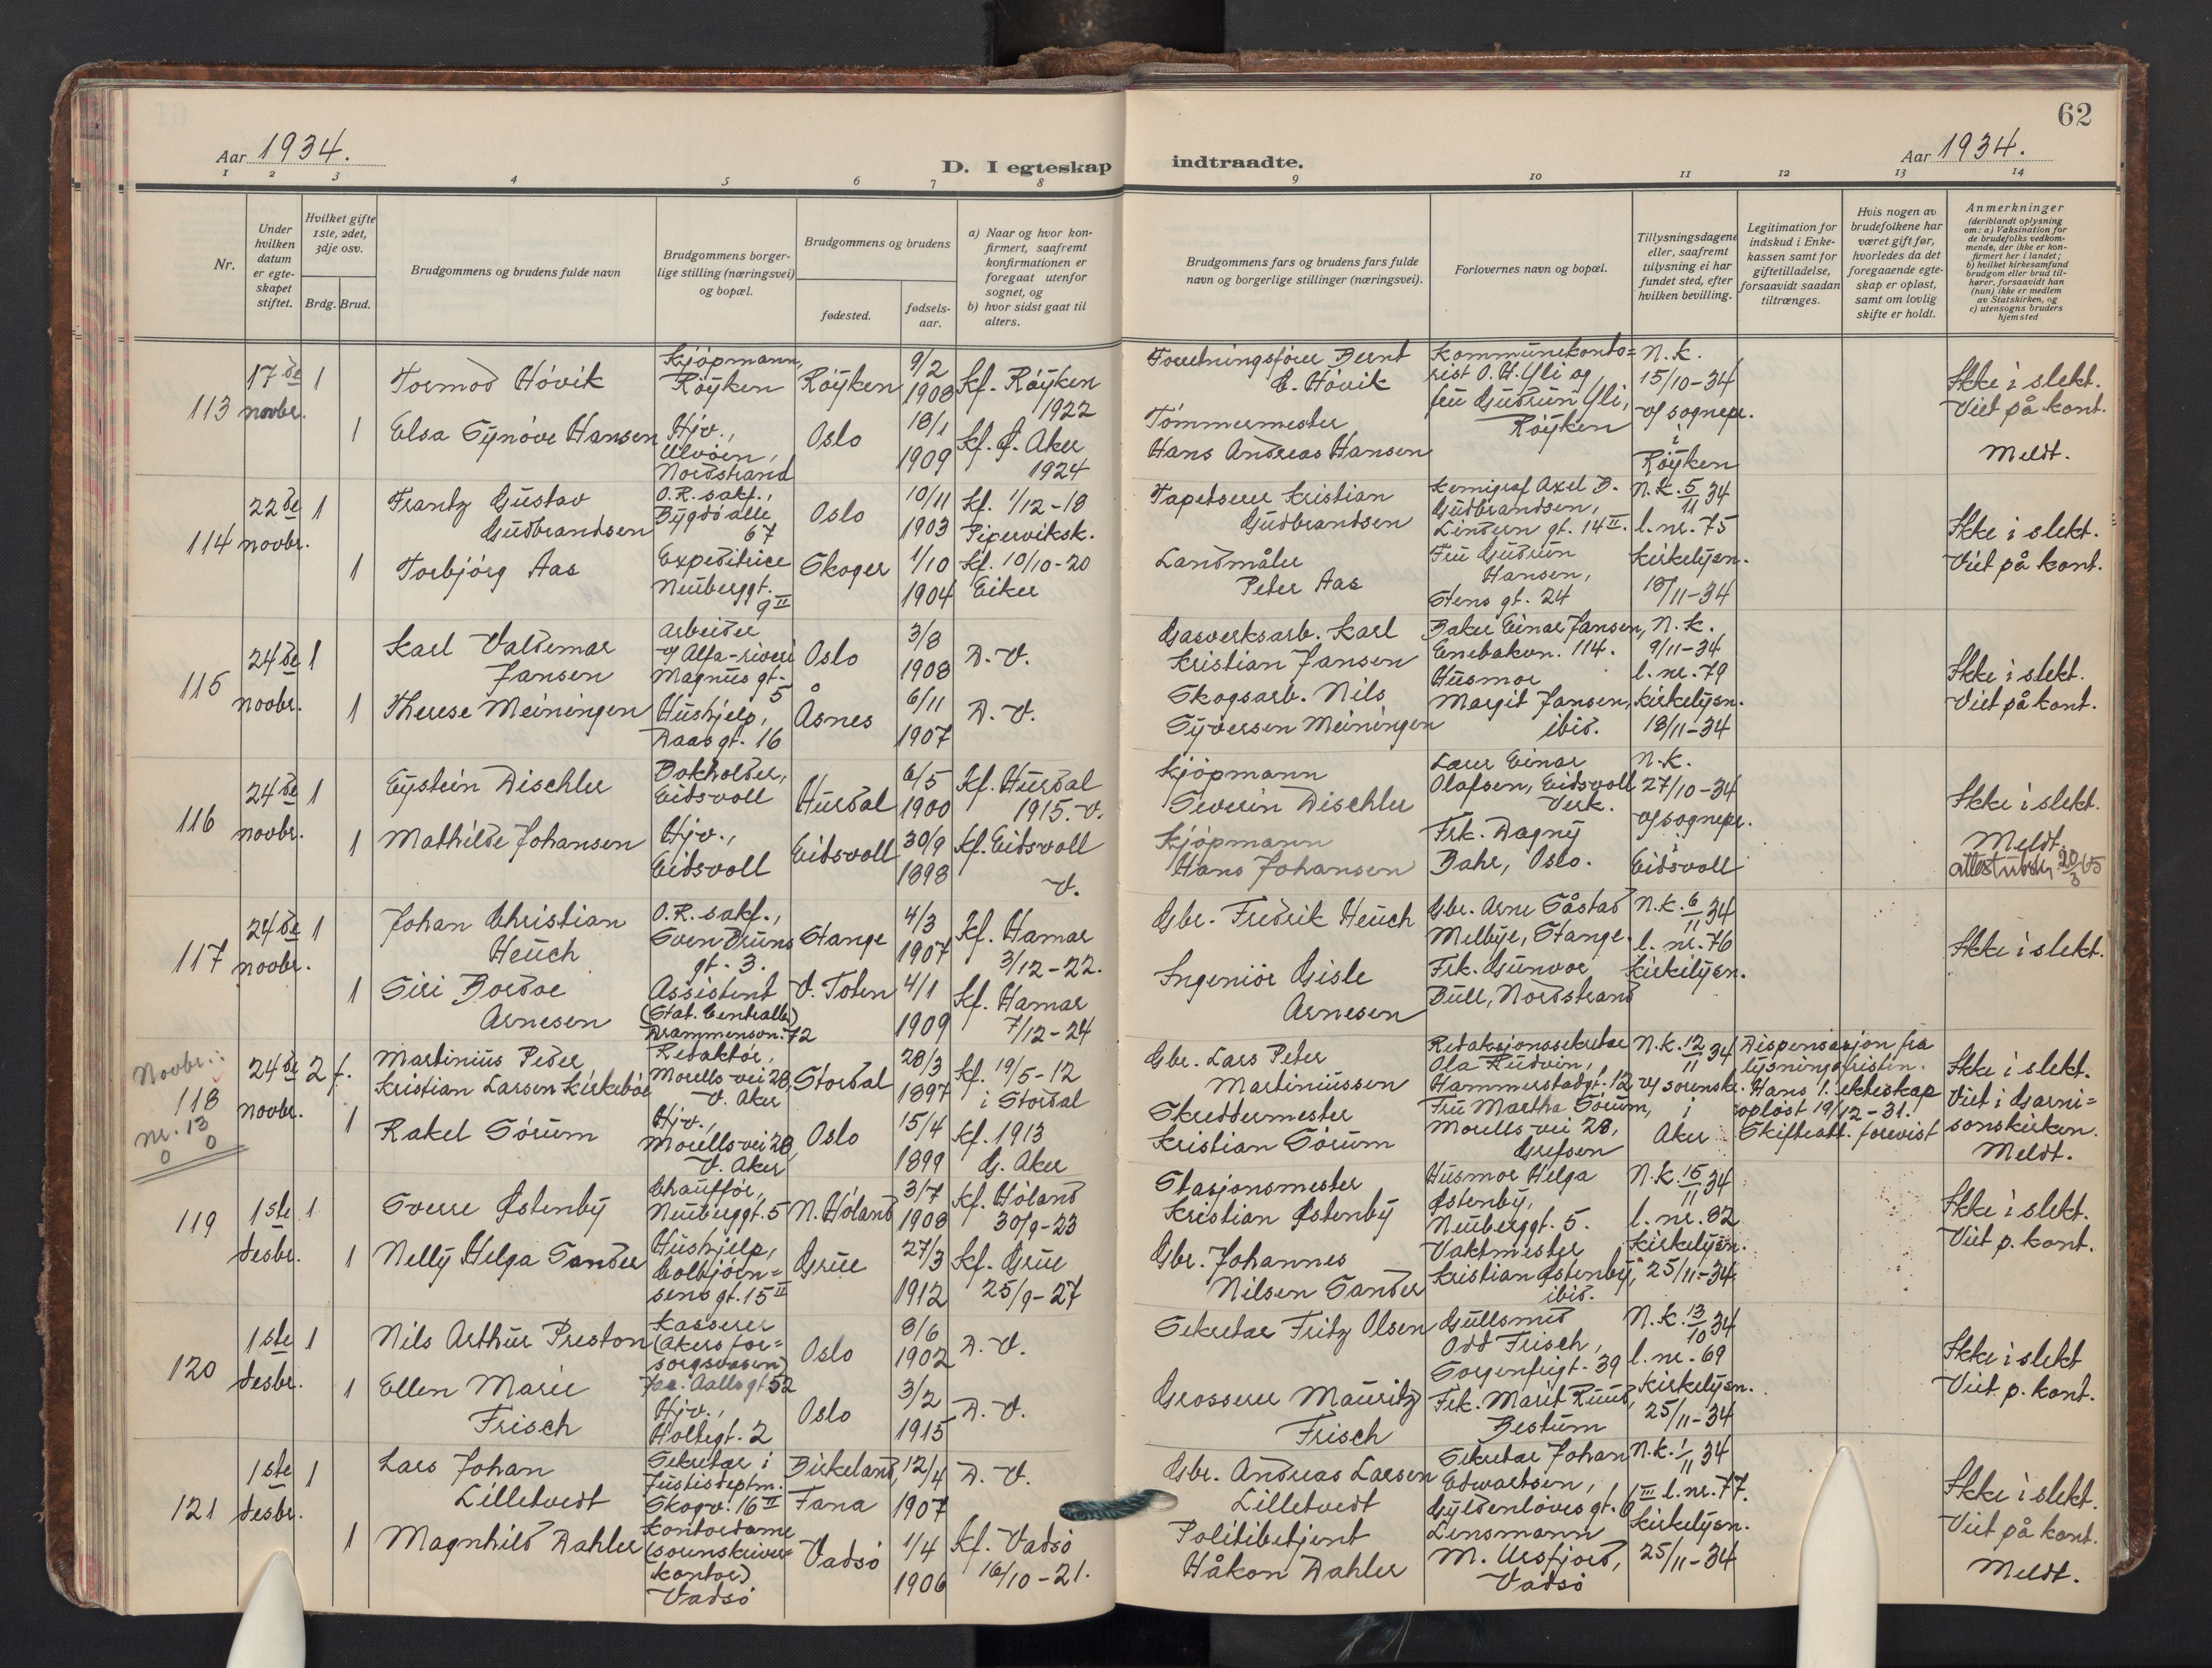 62
Aar 1934.
D. I egteskap indtraadte.
Aar 1934.
1 2 3 4 5 6 7 8 9 10 11 12 13 14
Nr.
Under hvilken datum er egteskapet stiftet.
Hvilket gifte 1ste, 2det, 3dje osv.
Brdg. Brud.
Brudgommens og brudens fulde navn
Brudgommens borgerlige stilling (næringsvei) og bopæl.
Brudgommens og brudens
fødested.
fødselsaar.
a) Naar og hvor konfirmert, saafremt konfirmationen er foregaat utenfor sognet, og
b) hvor sidst gaat til alters.
Brudgommens fars og brudens fars fulde navn og borgerlige stillinger (næringsvei).
Forlovernes navn og bopæl.
Tillysningsdagene eller, saafremt tillysning ei har fundet sted, efter hvilken bevilling.
Legitimation for indskud i Enkekassen samt for giftetilladelse, forsaavidt saadan tiltrænges.
Hvis nogen av brudefolkene har været gift før, hvorledes da det foregaaende egteskap er opløst, samt om lovlig skifte er holdt.
Anmerkninger
(deriblandt oplysning om: a) Vaksination for de brudefolks vedkommende, der ikke er konfirmert her i landet; b) hvilket kirkesamfund brudgom eller brud tilhører, forsaavidt han (hun) ikke er medlem av Statskirken, og c) utensogns bruders hjemsted
113
17de novbr.
1
Tormod Hóvik
Kjópmann,
Róyken
Róyken
9/2
1908
Kf. Róyken
1922
Forretningsfórer Bernt
E. Hóvik
Kommunekonto=
rist O. H. Yli og
fru Gudrun Yli,
Róyken
N.k.
15/10-34
v/ sognepr.
i
Róyken
Ikke i slekt.
Viet på kont.
Meldt.
1
Elsa Synóve Hansen
Hjv.,
Ulvóen,
Nordstrand
Oslo
18/1
1909
Kf. Ø. Aker
1924
Tómmermester
Hans Andreas Hansen
114
22de novbr.
1
Frantz Gustav
Gudbrandsen
O.R. sakf.,
Bygdó alle
67
Oslo
10/11
1903
Kf. 1/12-18
Piperviksk.
Tapetserer Kristian
Gudbrandsen
Kemigraf Axel B.
Gudbrandsen,
Lindern gt. 14 II.
Fru Gudrun
Hansen,
Stens gt. 24
N.k. 5/11 34
l. nr. 75
Kirkelysn.
18/11-34
Ikke i slekt.
Viet på kont.
1
Torbjórg Aas
Expeditrice
Neuberggt.
9 II
Skoger
1/10
1904
Kf. 10/10-20
Eiker
Landmåler
Peter Aas
115
24de novbr.
1
Karl Valdemar
Jansen
Arbeider
v/ Alfa-riveri
Magnus gt.
5
Oslo
3/8
1908
D. V.
Gasverksarb. Karl
Kristian Jansen
Baker Einar Jansen,
Enebakvn. 114.
Husmor
Margit Jansen,
ibid.
N.k.
9/11-34
l. nr. 79
Kirkelysn.
18/11-34
Ikke i slekt.
Viet på kont.
1
Therese Meiningen
Hushjelp,
Daas gt. 16
Åsnes
6/11
1907
D. V.
Skogsarb. Nils
Syversen Meiningen
116
24de novbr.
1
Eystein Dischler
Bokholder,
Eidsvoll
Hurdal
6/5
1900
Kf. Hurdal
1915. V.
Kjópmann
Severin Dischler
Lærer Einar
Olafsen, Eidsvoll
Verk.
Frk. Dagny
Bahr, Oslo.
N.k.
27/10-34
v/ sognepr.
i
Eidsvoll
Ikke i slekt.
Meldt.
attest utst. 20/3 65
1
Mathilde Johansen
Hjv.,
Eidsvoll
Eidsvoll
30/9
1898
Kf. Eidsvoll
V.
Kjópmann
Hans Johansen
117
24de novbr.
1
Johan Christian
Heuch
O.R. sakf.,
Sven Bruns
gt. 3.
Stange
4/3
1907
Kf. Hamar
3/12-22.
Gbr. Fredrik Heuch
Gbr. Arne Såstad
Melbye, Stange.
Frk. Gunvor
Bull, Nordstrand
N.k. 6/11 34
l. nr. 76
Kirkelysn.
Ikke i slekt.
1
Siri Bordoe
Arnesen
Assistent
(Stat. Centralb.)
Drammensvn. 72
V. Toten
4/1
1909
Kf. Hamar
7/12-24
Ingeniór Gisle
Arnesen
Novbr.:
118
nr. 13
0 0
24de novbr.
2 f.
Martinius Peder
Kristian Larsen Kirkebóe
Redaktór,
Morells vei 28,
V. Aker
Stordal
28/3
1897
Kf. 19/5-12
i Stordal
Gbr. Lars Peter
Martiniussen
Redaksjonssekretær
Ola Rudvin,
Hammerstadgt. 12
Fru Martha Sórum,
Morells vei 28,
Grefsen
N.k. 12/11 34
v/ sorenskr.
i
Aker
Dispensasjon fra
lysningsfristen.
Hans 1. ekteskap
oplóst 19/12-31.
Skifteatt. forevist
Ikke i slekt.
Viet i Garni=
sonskirken.
Meldt.
1
Rakel Sórum
Hjv.,
Morells vei 28,
V. Aker
Oslo
15/4
1899
Kf. 1913
G. Aker
Skreddermester
Kristian Sórum
119
1ste desbr.
1
Sverre Østenby
Chauffór,
Neuberggt. 5
N. Hóland
3/7
1908
Kf. Hóland
30/9-23
Stasjonsmester
Kristian Østenby
Husmor Helga
Østenby,
Neuberggt. 5.
Vaktmester
Kristian Østenby,
ibid.
N.k. 15/11 34
l. nr. 82
Kirkelysn.
25/11-34
Ikke i slekt.
Viet p. kont.
1
Nelly Helga Sander
Hushjelp,
Colbjórn=
sens gt. 15 II
Grue
27/3
1912
Kf. Grue
25/9-27
Gbr. Johannes
Nilsen Sander
120
1ste desbr.
1
Nils Arthur Preston
Kasserer
(Akers for=
sorgsvesen)
Jac. Aalls gt 52
Oslo
8/6
1902
D. V.
Sekretær Fritz Olsen
Gullsmed
Odd Frisch,
Sorgenfrigt. 39
Frk. Marit Ruud,
Bestum
N.k. 13/10 34
l. nr. 69
Kirkelysn.
25/11-34
Ikke i slekt
Viet. p. kont.
1
Ellen Marie
Frisch
Hjv.,
Holtegt. 2
Oslo
3/2
1915
D. V.
Grosserer Mauritz
Frisch
121
1ste desbr.
1
Lars Johan
Lilletvedt
Sekretær i
Justisdeptm.
Skogv. 16 II
Birkeland,
Fana
12/4
1907
D. V.
Gbr. Andreas Larsen
Lilletvedt
Sekretær Johan
Edwardsen,
Gyldenlóves gt. 6 III
Lensmann
M. Ursfjord,
Vadsó
N.k. 1/11 34
l. nr. 77.
Kirkelysn.
25/11-34
Ikke i slekt.
Viet på kont.
Meldt.
1
Magnhild Dahler
Kontordame
(sorenskriver=
kontor)
Vadsó
Vadsó
1/4
1906
Kf. Vadsó
16/10-21.
Politibetjent
Håkon Dahler